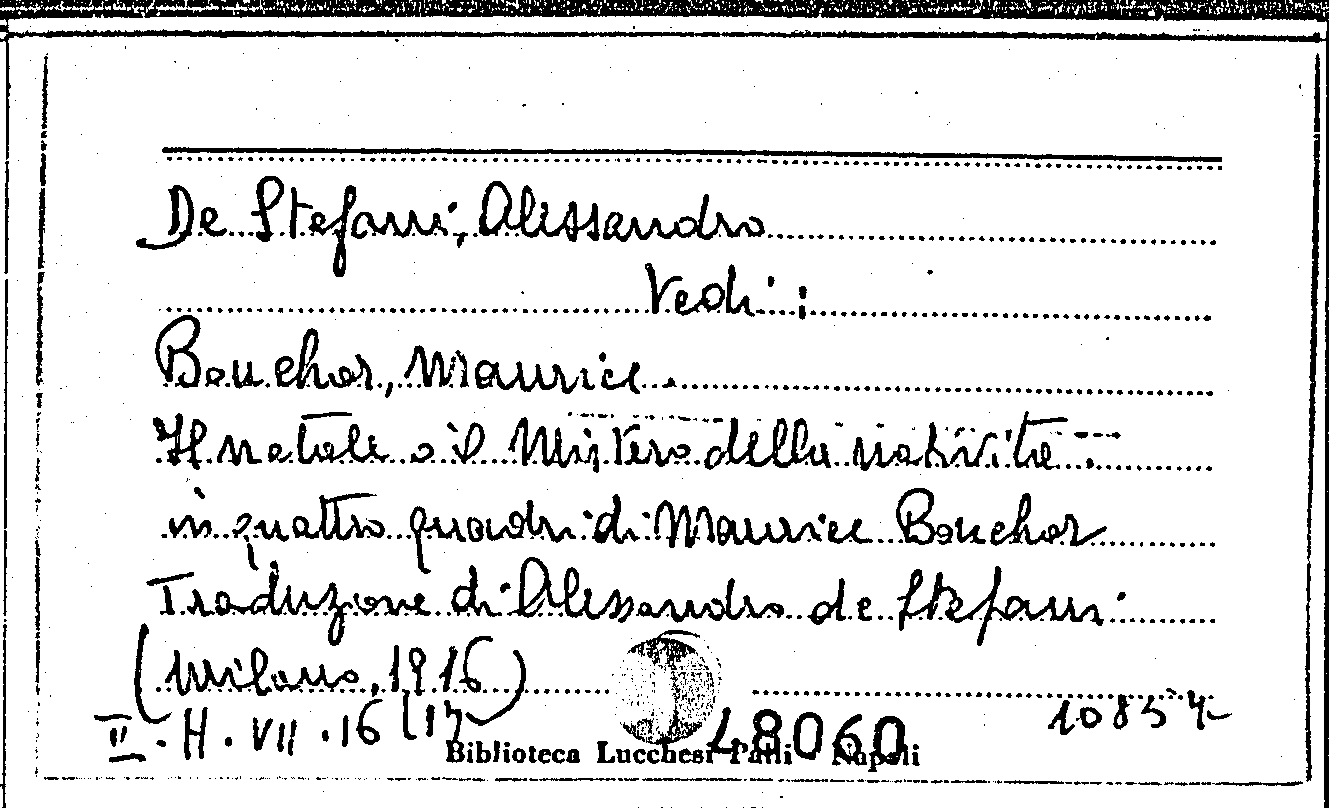 De Stefani, Alessandro
Vedi:
Bouchor, Maurice.
Il natale o il Mistero della natività:
in quattro quadri di Maurice Bouchor
Traduzione di Alessandro de Stefani
(Milano, 1916)
II. H. VII. 16 (17)
48060
Biblioteca Lucchesi Palli - Napoli